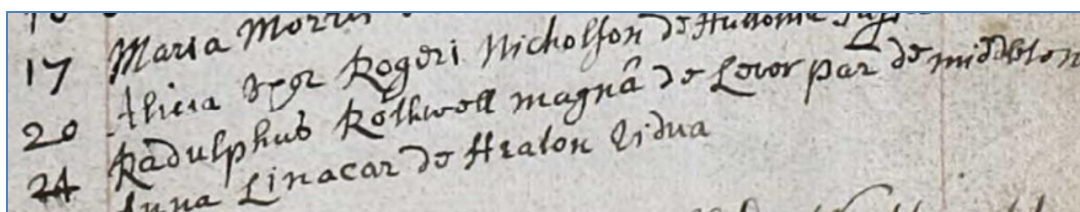 17 Maria Morris
20 Alicia vxor Rogeri Nicholson de Hulton
Radulphus Rothwell magnâ de Lever par de middleton
24 Anna Linacar de Heaton Vidua